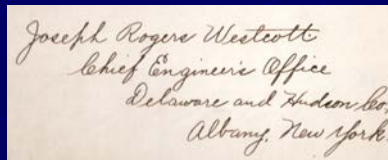 Joseph Rogers Westcott
Chief Engineer's Office
Delaware and Hudson Co.
Albany, New York